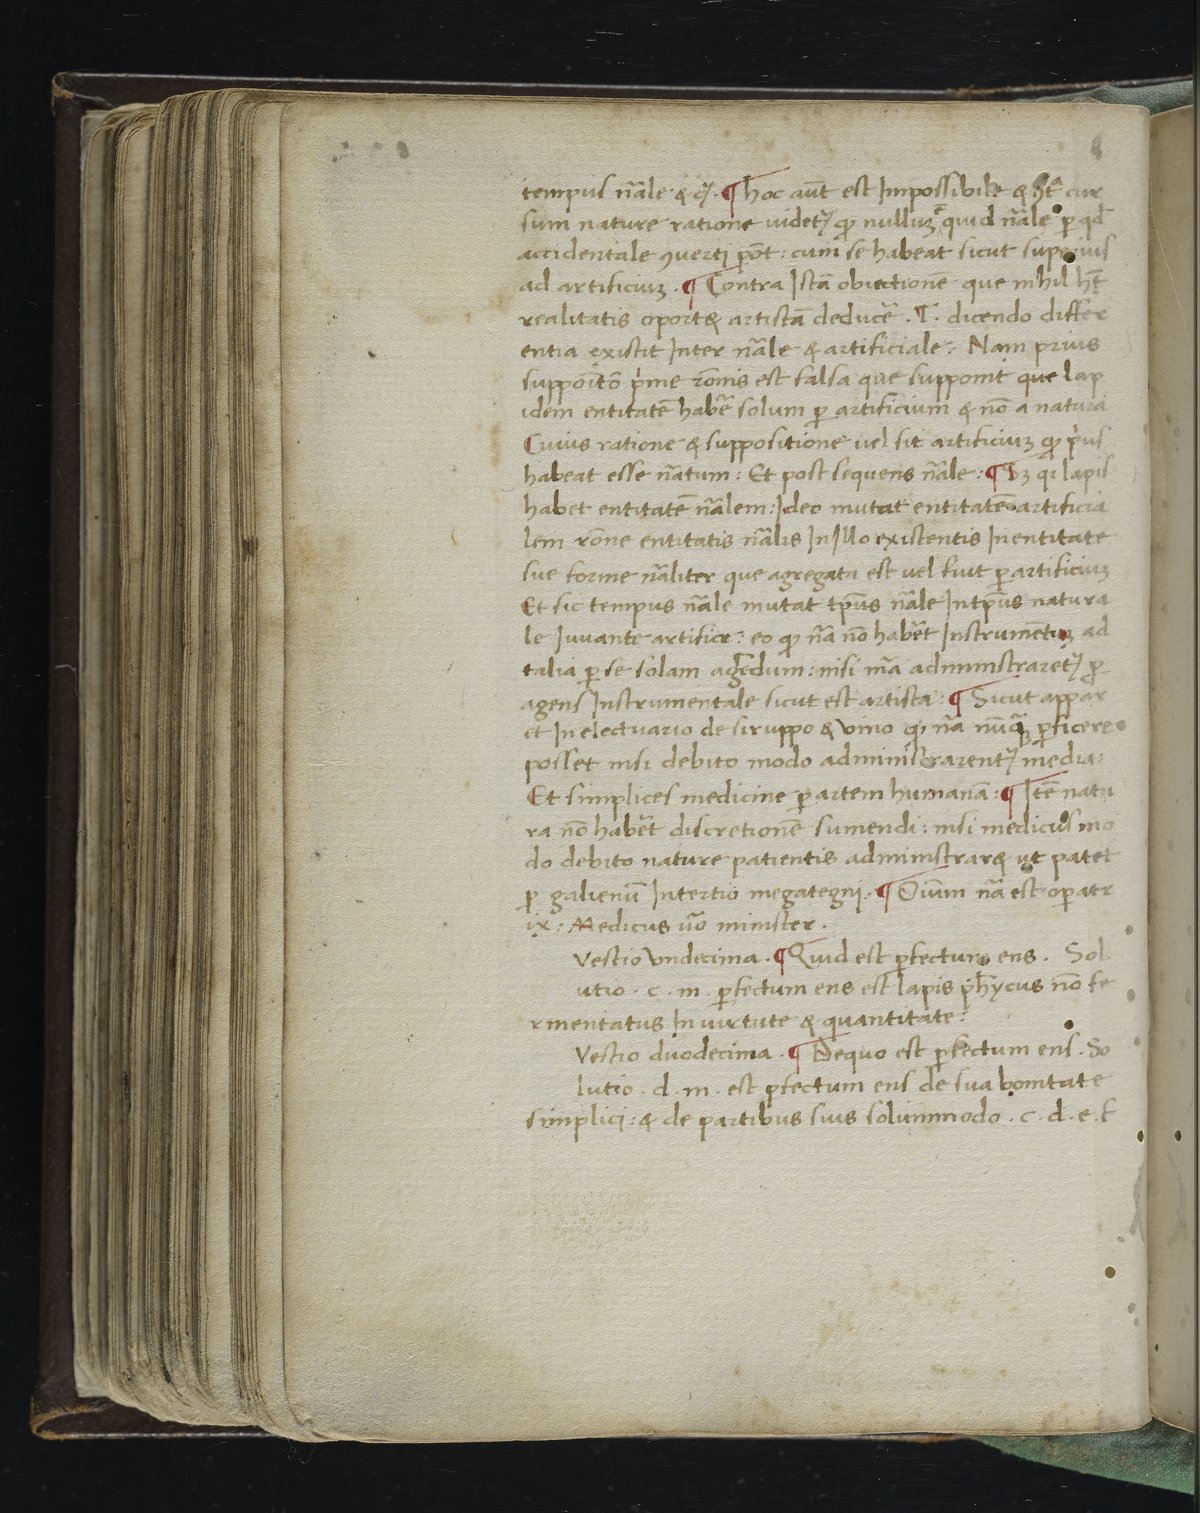 tempus nãle & cȷ̃. ¶ hoc aut̃ est Impossibile & cur
sum nature ratione videtȝ qȝ nullũȝ quid nãle ꝑ qđ
accidentale ꝯverti põt: cum se habeat sicut superius
ad artificiuȝ. ¶ Contra Istã obiectionẽ que nihil hẽt
realitatis oportȝ artistã deducẽ. T. dicendo differ
entia existit Inter nãle & artificiale: Nam prius
suppõitõ pĩme rõnis est falsa que supponit que lap
idem entitatẽ habẽ solum ꝑ artificium & nõ a natura
Cuius ratione & suppositione vel sit artificiuȝ qȝ pĩus
habeat esse nãtum: Et post sequens nãle: ¶ Sȝ qȝ lapis
habet entitatẽ nãlem: Ideo mutat entitatẽ artificia
lem rõne entitatis nãlis In Illo existentis In entitate
sue forme nãliter que agregata est vel fuit ꝑ artificiuȝ
Et sic tempus nãle mutat tp̃us nãle In tp̃us natura
le Iuvante artifice: eo qȝ nã nõ habẽt Instrumẽtuȝ ad
talia ꝑ se solam agẽdum: nisi mã administraretȝ ꝑ
agens Instrumentale sicut est artista: ¶ Sicut appar
et In electuario de siruppo & vino qȝ nã nũqȝ ꝑficere
posset nisi debito modo administrarentȝ media:
Et simplices medicine ꝑ artem humanã: ¶ Itẽ natu
ra nõ habẽt discretionẽ sumendi: nisi medicus mo
do debito nature patientis administrarȝ ut patet
ꝑ galienũ In tertio megategni. ¶ Oium nã est operatr
ix: Medicus ṽo minister.
vestio vndecima. ¶ Quid est ꝑfectum ens. Sol
utio. c. m. ꝑfectum ens est lapis phỹcus nõ fe
rmentatus In virtute & quantitate:
vestio duodecima. ¶ De quo est ꝑfectum ens. So
lutio. d. m. est pfectum ens de sua bonitate
simplici: & de partibus suis solummodo. c. d. e. f